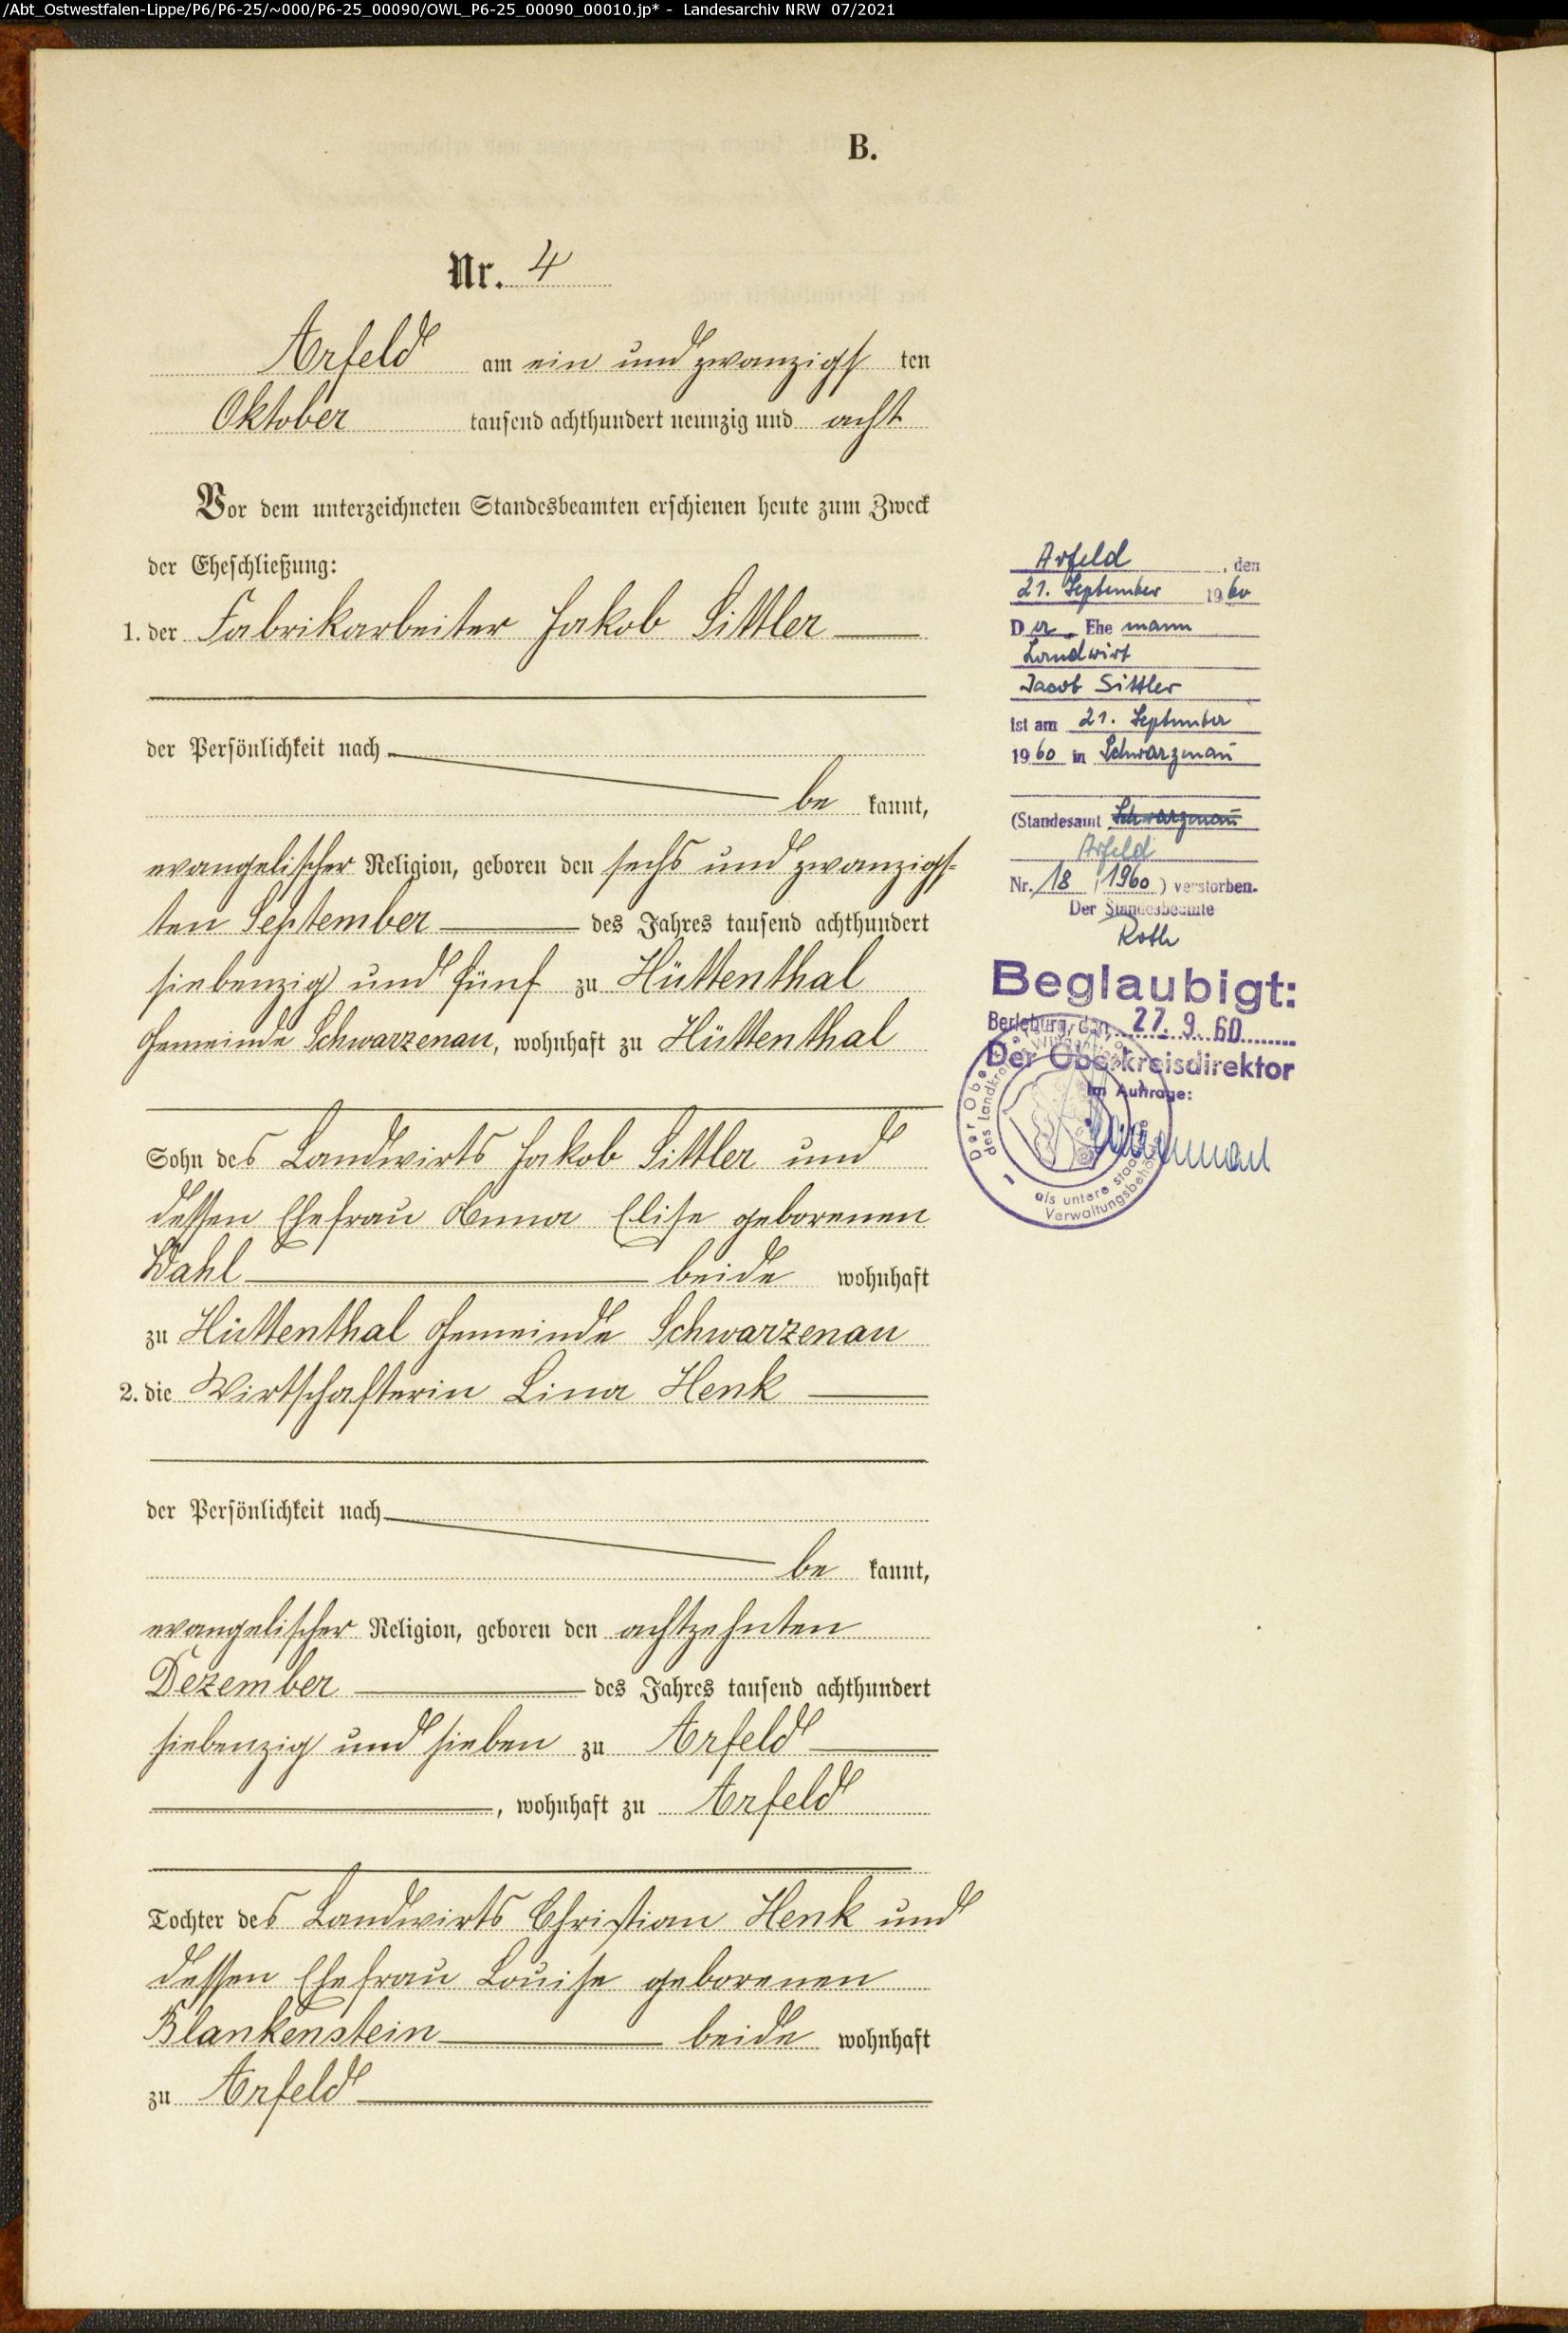 /Abt_Ostwestfalen-Lippe/P6/P6-25/~000/P6-25_00090/OWL_P6-25_00090_00010.jp* - Landesarchiv NRW 07/2021
B.
Nr. 4
Arfeld am ein und zwanzigs ten
Oktober tausend achthundert neunzig und acht
Vor dem unterzeichneten Standesbeamten erschienen heute zum Zweck
der Eheschließung:
1. der Fabrikarbeiter Jakob Sittler
der Persönlichkeit nach
be kannt,
evangelischer Religion, geboren den sechs und zwanzigs-
ten September des Jahres tausend achthundert
siebenzig und fünf zu Hüttenthal
Gemeinde Schwarzenau, wohnhaft zu Hüttenthal
Sohn des Landwirts Jakob Sittler und
dessen Ehefrau Anna Elise geborenen
Wahl beide wohnhaft
zu Hüttenthal Gemeinde Schwarzenau
2. die Wirtschafterin Lina Henk
der Persönlichkeit nach
be kannt,
evangelischer Religion, geboren den achtzehnten
Dezember des Jahres tausend achthundert
siebenzig und sieben zu Arfeld
, wohnhaft zu Arfeld
Tochter des Landwirts Christian Henk und
dessen Ehefrau Louise geborenen
Blankenstein beide wohnhaft
zu Arfeld
Arfeld, den
21. September 1960
Der Ehemann
Landwirt
Jacob Sittler
ist am 21. September
1960 in Schwarzenau
(Standesamt Schwarzenau
Arfeld
Nr. 18 / 1960) verstorben.
Der Standesbeamte
Roth
Beglaubigt:
Berleburg, den 27. 9. 60
Der Oberkreisdirektor
Im Auftrage:
Der Obe
des Landkreises Wittgenstein
als untere staatl.
Verwaltungsbehö